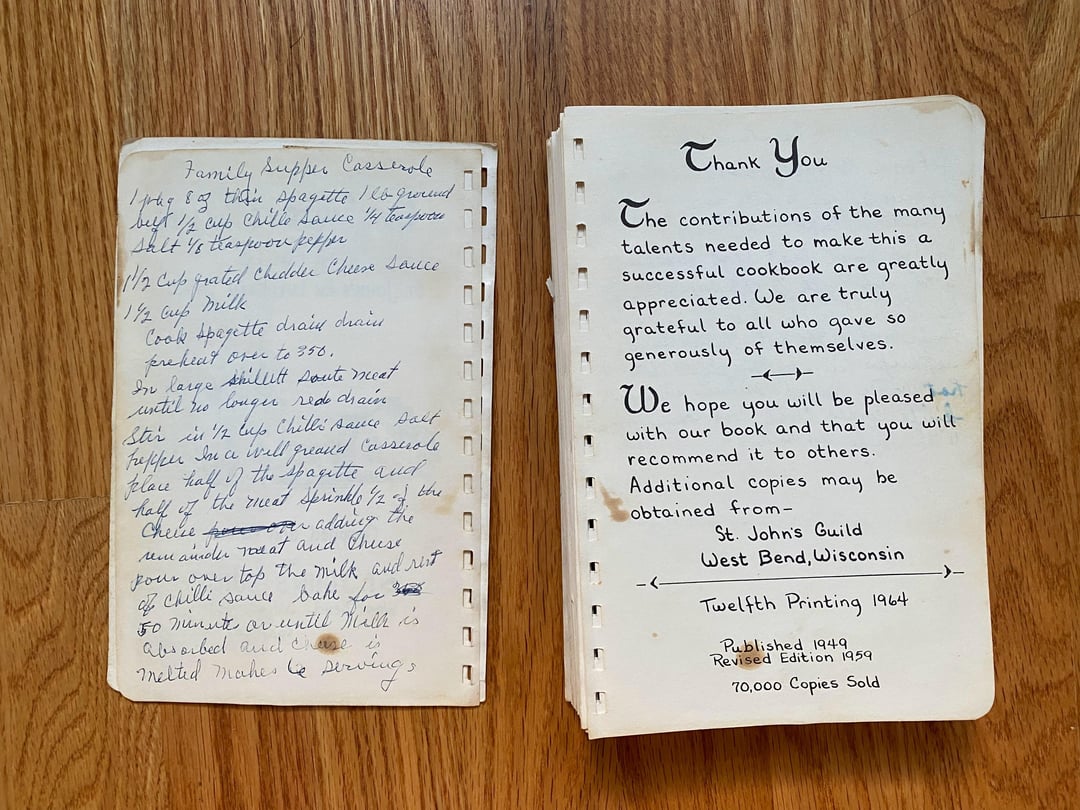 Family Supper Casserole
1 pkg 8 oz thin spagette 1 lb ground
beef 1/2 cup Chilli Sauce 1/4 teaspoon
Salt 1/8 teaspoon pepper
1 1/2 cup grated chedder Cheese Sauce
1 1/2 cup Milk
Cook spagette drain drain
preheat over to 350.
In large skillett saute meat
until no longer redo drain
Stir in 1/2 cup Chilli sauce salt
pepper In a well greand Casserole
place half of the spagette and
half of the meat sprinkle 1/2 of the
Cheese pour over adding the
remainder meat and Cheese
pour over top the milk and rest
of Chilli sauce bake for
50 minute or until Milk is
absorbed and Cheese is
melted Makes 6 servings
Thank You
The contributions of the many
talents needed to make this a
successful cookbook are greatly
appreciated. We are truly
grateful to all who gave so
generously of themselves.
We hope you will be pleased
with our book and that you will
recommend it to others.
Additional copies may be
obtained from–
St. John's Guild
West Bend, Wisconsin
Twelfth Printing 1964
Published 1949
Revised Edition 1959
70,000 Copies Sold